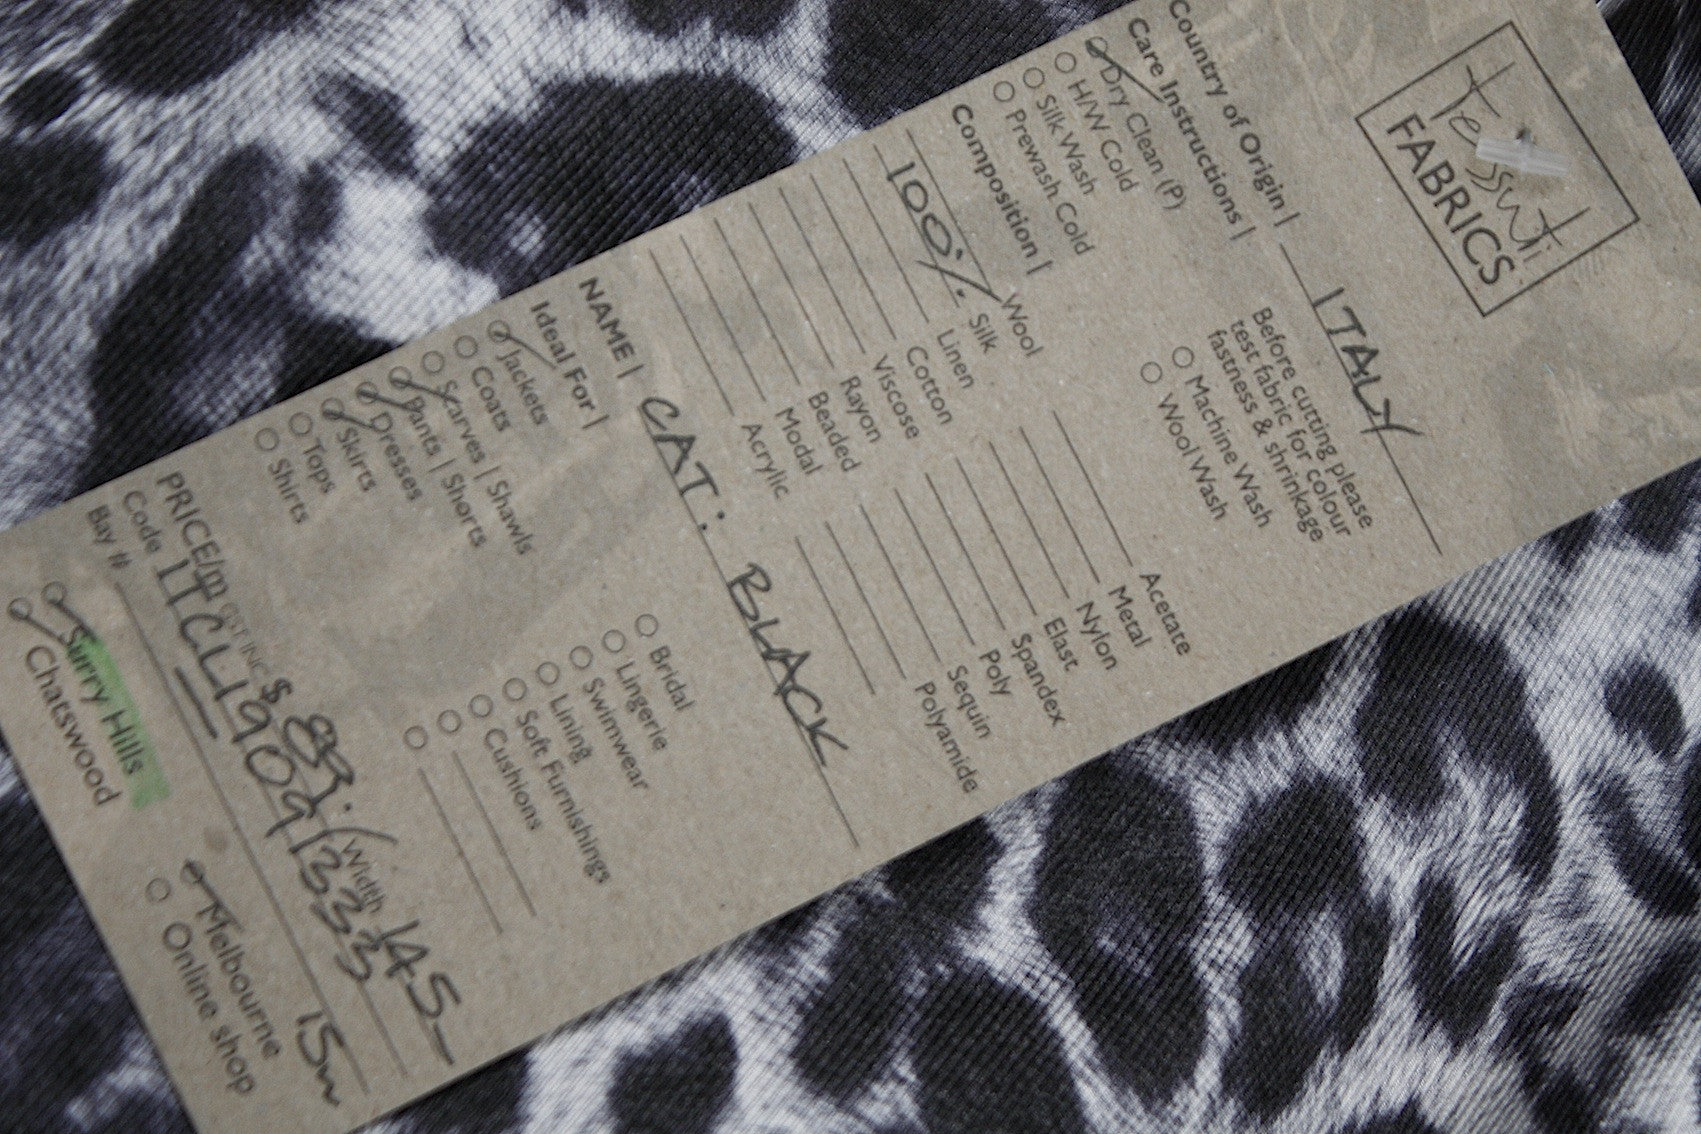 Tessuti
FABRICS
Country of Origin | ITALY
Care Instructions |
Dry Clean (P)
H/W Cold
Silk Wash
Prewash Cold
Before cutting please
test fabric for colour
fastness & shrinkage
Machine Wash
Wool Wash
Composition |
Wool
100% Silk
Linen
Cotton
Viscose
Rayon
Beaded
Modal
Acrylic
Acetate
Metal
Nylon
Elast
Spandex
Poly
Sequin
Polyamide
NAME | CAT: BLACK
Ideal For |
Jackets
Coats
Scarves | Shawls
Pants | Shorts
Dresses
Skirts
Tops
Shirts
Bridal
Lingerie
Swimwear
Lining
Soft Furnishings
Cushions
PRICE/m GST INC $ 89. Width 145
Code ITCL19091333
Bay # 15m
Surry Hills
Chatswood
Melbourne
Online shop